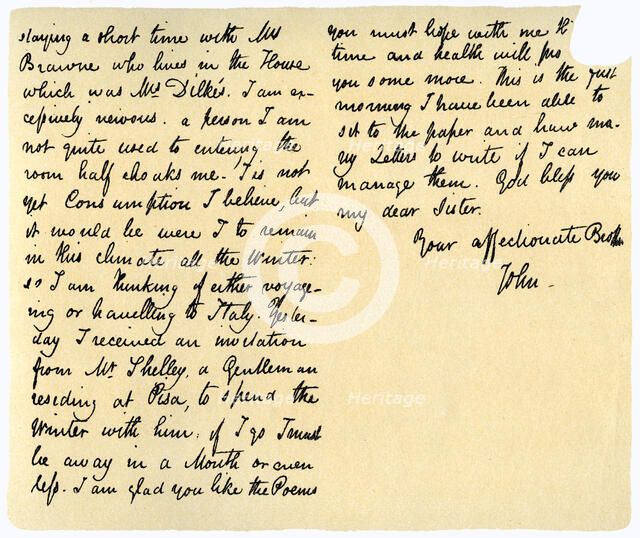 staying a short time with Mrs
Brawne who lives in the House
which was Mrs Dilke's. I am ex-
cessively nervous. a person I am
not quite used to entering the
room half choaks me. Tis not
yet Consumption I believe, but
it would be were I to remain
in this climate all the Winter:
so I am thinking of either voyage-
ing or travelling to Italy. Yester-
day I received an invitation
from Mr Shelley, a Gentleman
residing at Pisa, to spend the
Winter with him: if I go I must
be away in a Month or even
less. I am glad you like the Poems
you must hope with me
time and health will pro
you some more. This is the first
morning I have been able to
sit to the paper and have ma-
ny Letters to write if I can
manage them. God bless you
my dear Sister.
Your affectionate Brother
John-
Heritage
Heritage
Heritage
Heritage
C